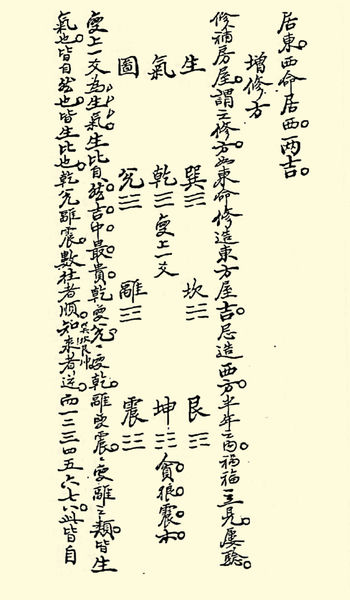 居東西命居西兩吉
增修方
修補房屋謂之修方如東命修造東方屋吉忌造西方半年之內禍福立見屢驗
生 巽☴ 坎☵ 艮☶
氣 乾☰變上一爻 坤☷貪狼震木
圖 兌☱ 離☲ 震☳
變上一爻為生氣生比自然吉中最貴乾變兌〻變乾離變震〻變離之類皆生
氣也皆自然也皆生比也乾兌離震數往者順巽坎艮坤知來者逆而一二三四五六七八此皆自